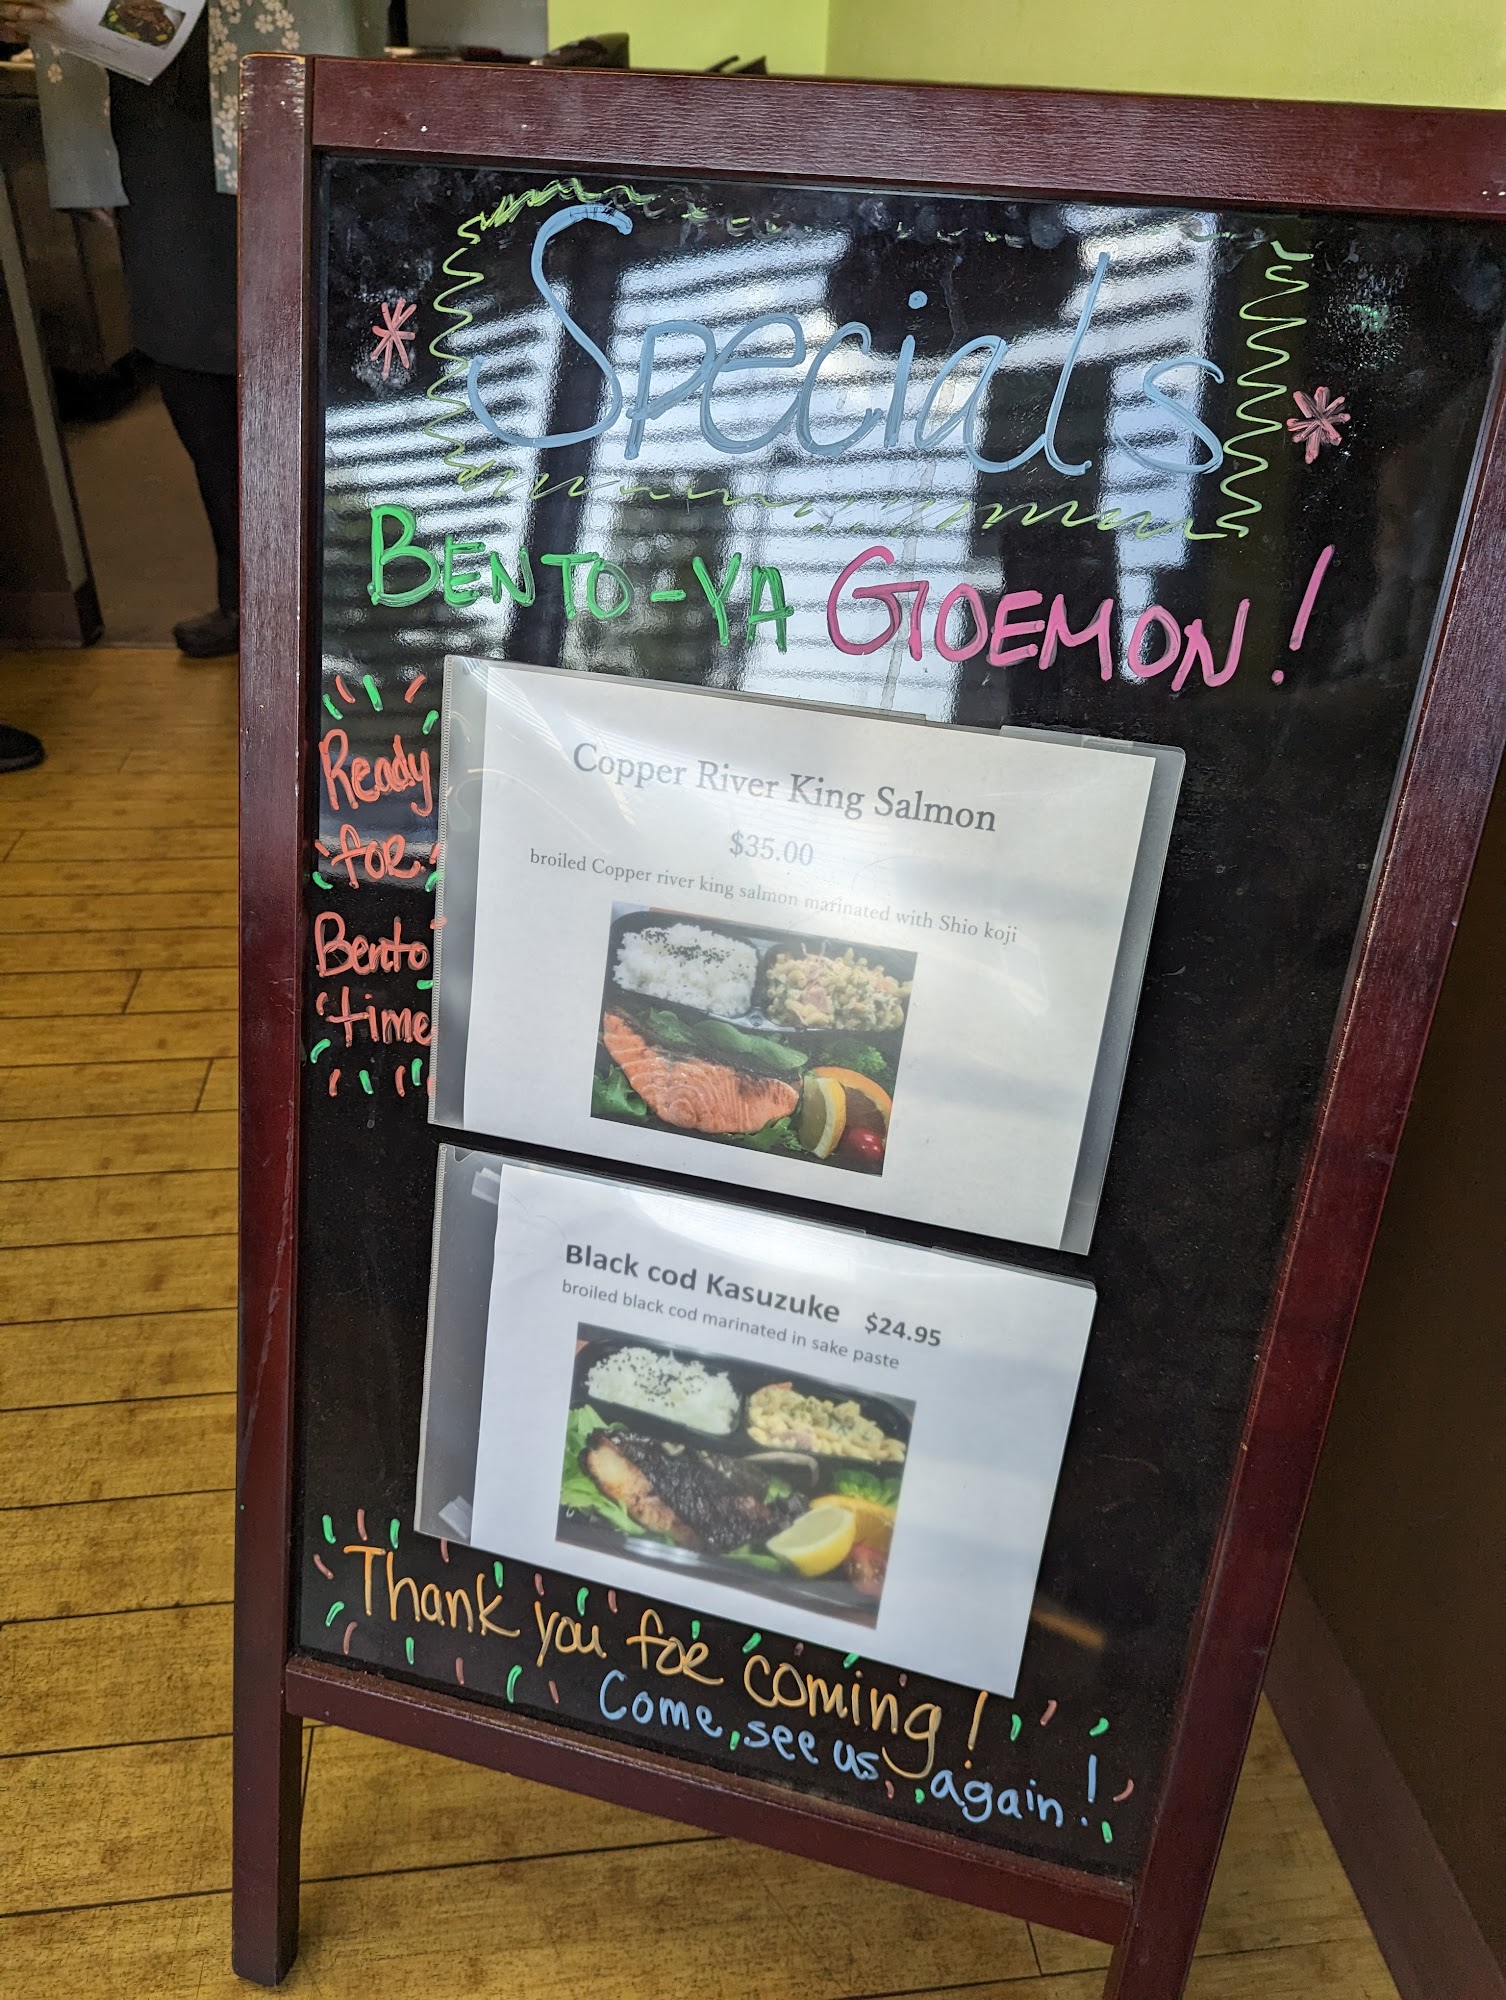 Specials
BENTO-YA GOEMON!
Ready
for
Bento
time
Copper River King Salmon
$35.00
broiled Copper river king salmon marinated with Shio koji
Black cod Kasuzuke $24.95
broiled black cod marinated in sake paste
Thank you for coming!
Come, see us again!